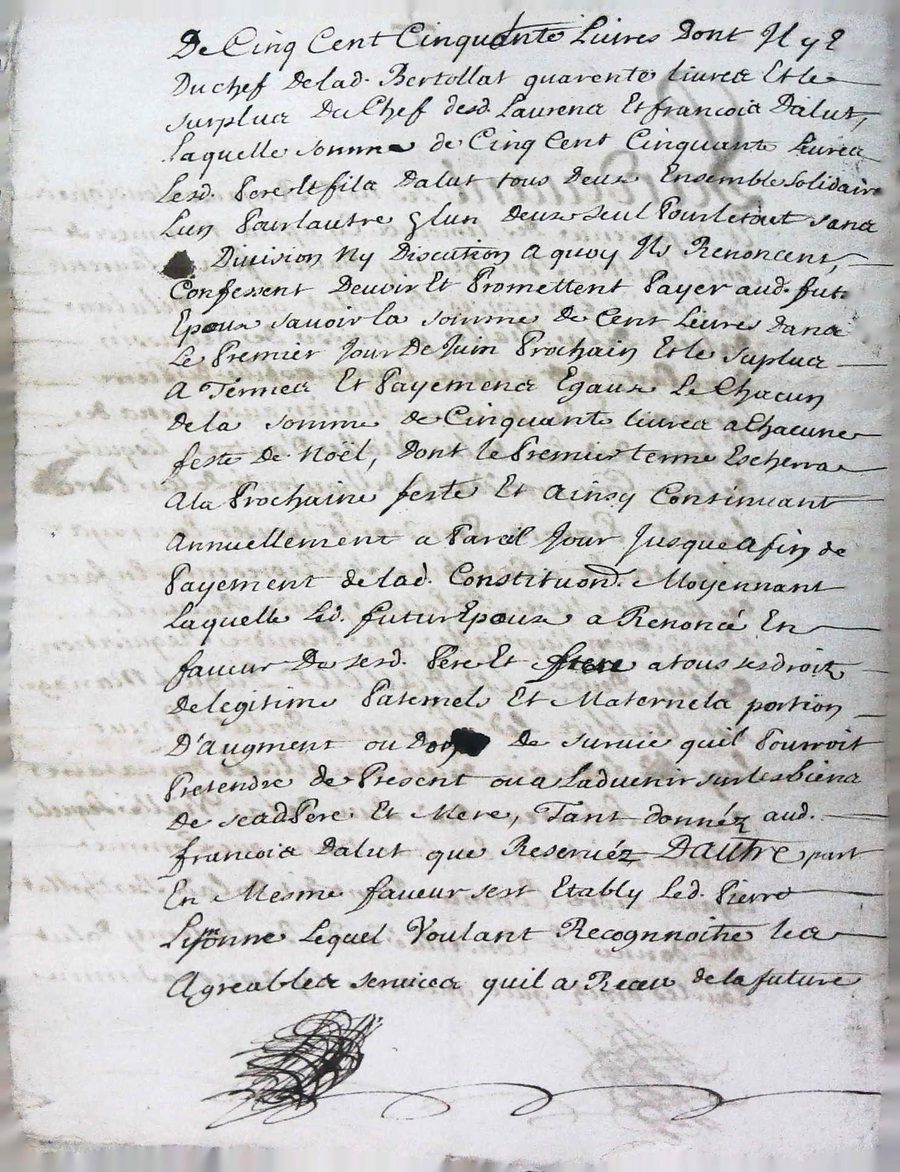 De Cinq Cent Cinquante Livres Dont Il y a
Du chef de lad. Bertollat quarente livres Et le
surplus Du Chef desd. Laurens Et francois Dalut,
laquelle somme de Cinq Cent Cinquante Livres
Lesd. Pere Et fils Dalut tous deux Ensemble solidaire
Lun Pour lautre & lun deux seul Pour le tout sans
Division ny Discution a quoy Ils Renoncent,
Confessent Devoir Et Promettent Payer aud. fut.
Epoux savoir la somme de Cent Livres dans
Le Premier Jour De Juin Prochain Et le suplus
A Termes Et Payemens Egaux Le Chacun
de la somme de Cinquante livres a Chacune
feste de Noël, dont le Premier terme Escherra
A la Prochaine feste Et Ainsy Continuant
Annuellement a Pareil Jour Jusque A fin de
Payement de lad. Constituon. Moyennant
Laquelle Led. futur Epoux a Renoncé En
faveur De sesd. Pere Et frere a tous ses droits
de legitime Paternels Et Maternels portion
D'Augment ou Don de survie quil Pourroit
Pretendre de Present ou a Ladvenir sur les Biens
de sesd Pere Et Mere, Tant donnéz aud.
francois Dalut que Reservéz D'autre part
En Mesme faveur sest Etably Led. Pierre
Lequel Voulant Recognnoitre les
Agreables services quil a Receu de la future